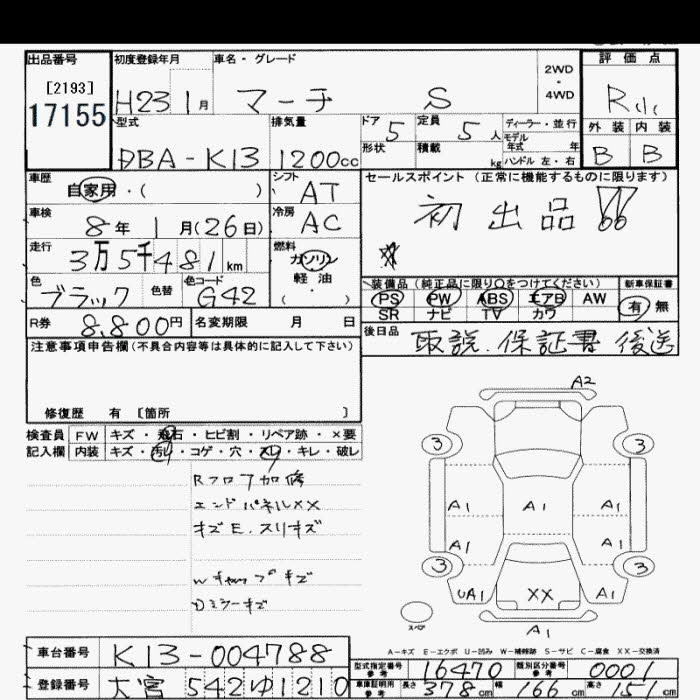 出品番号 初度登録年月 車名・グレード 2WD・4WD 評価点
[2193] H23 1月 マーチ S R小
17155 型式 排気量 ドア 5 定員 5人 ディーラー・並行 外装 内装
モデル年式 年
DBA-K13 1200cc 形状 積載 kg ハンドル 左・右 B B
車歴 自家用・( ) シフト AT セールスポイント (正常に機能するものに限ります)
車検 8年 1月(26日) 冷房 AC 初出品!!
走行 3万5千481km 燃料 ガソリン
軽油
( ・ )
色 ブラック 色替 色コード G42
装備品(純正品に限り○をつけてください) 新車保証書
PS PW ABS エアB AW 有 無
SR ナビ TV カワ
R券 8,800円 名変期限 月 日
後日品 取説.保証書 後送
注意事項申告欄(不具合内容等は具体的に記入して下さい)
修復歴 有 [箇所 ]
検査員 FW キズ・飛石・ヒビ割・リペア跡・×要
記入欄 内装 キズ・汚れ・コゲ・穴・スレ・キレ・破レ
Rフロア加修
エンドパネルXX
キズE.スリキズ
Wキャップキズ
Dミラーキズ
A2
3 3
A1 A1 A1
A1 A1
3 3
UA1 XX A1
スペア A1
A-キズ E-エクボ U-凹み W-補修跡 S-サビ C-腐食 XX-交換済
車台番号 K13-004788
型式指定番号 参考 16470 類別区分番号 参考 0001
登録番号 大宮 542ゆ1210
車庫証明用 参考 長さ 378cm 幅 166cm 高さ 151cm